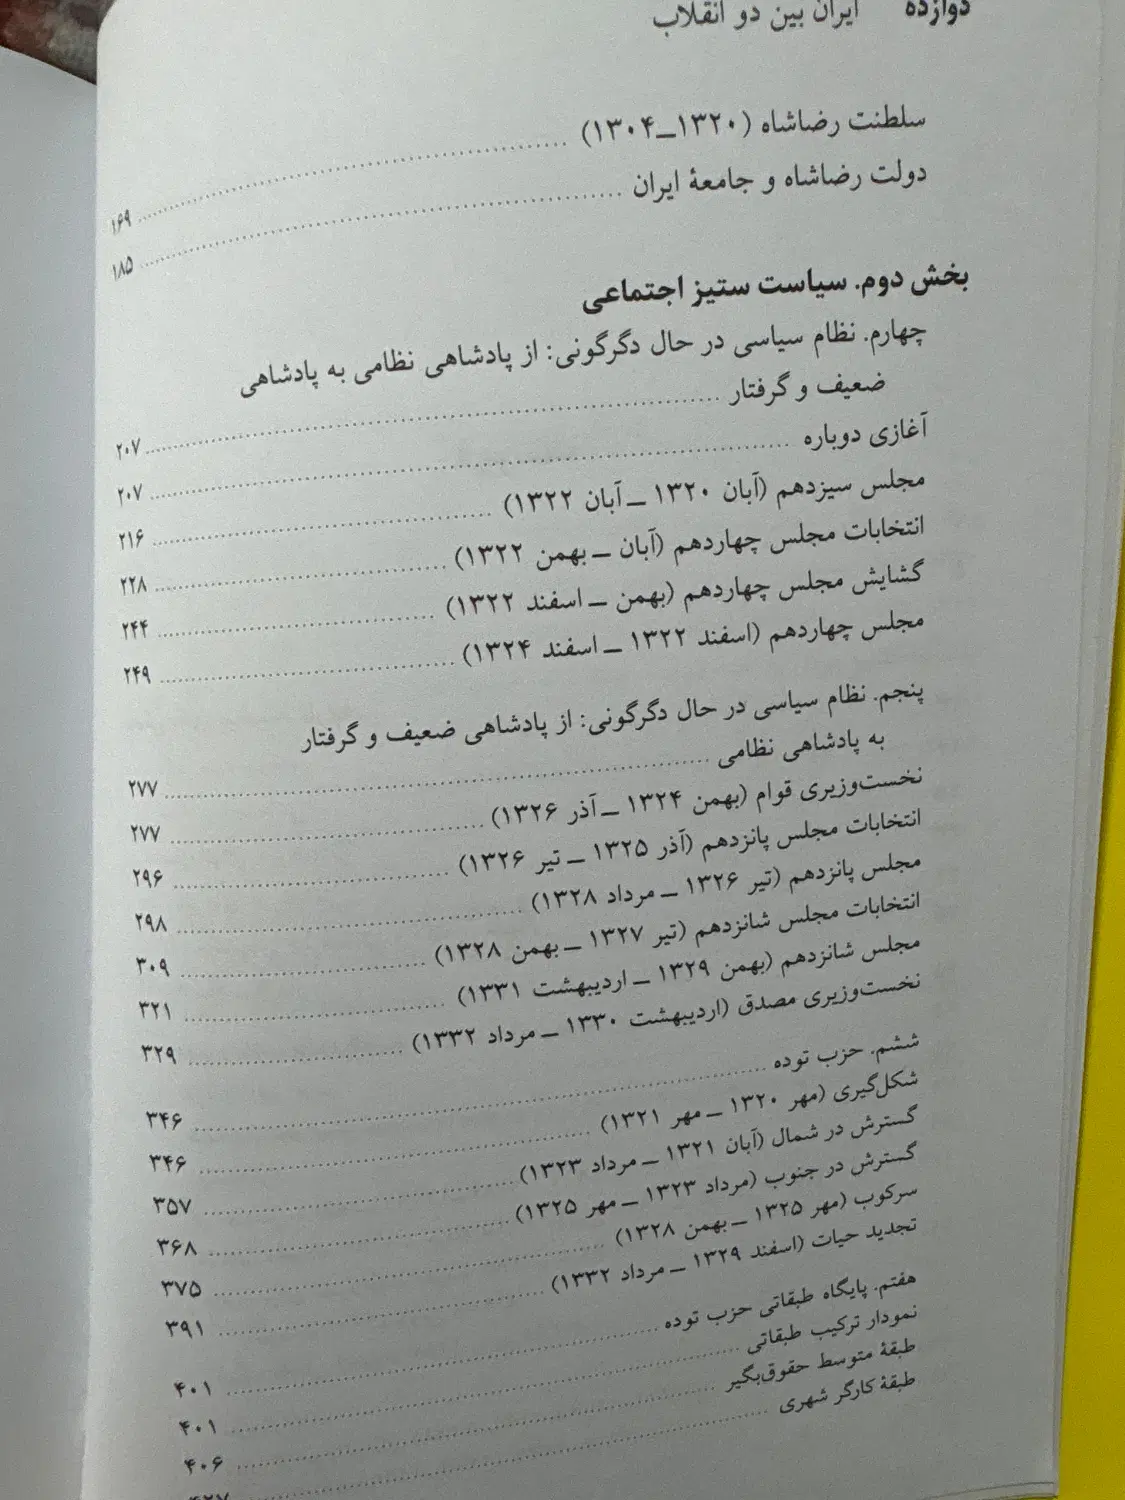 دوازده ایران بین دو انقلاب
سلطنت رضاشاه (۱۳۲۰ــ۱۳۰۴) ........ ۱۶۹
دولت رضاشاه و جامعهٔ ایران ........ ۱۸۵
بخش دوم. سیاست ستیز اجتماعی
چهارم. نظام سیاسی در حال دگرگونی: از پادشاهی نظامی به پادشاهی
ضعیف و گرفتار ........ ۲۰۷
آغازی دوباره ........ ۲۰۷
مجلس سیزدهم (آبان ۱۳۲۰ ــ آبان ۱۳۲۲) ........ ۲۱۶
انتخابات مجلس چهاردهم (آبان ــ بهمن ۱۳۲۲) ........ ۲۲۸
گشایش مجلس چهاردهم (بهمن ــ اسفند ۱۳۲۲) ........ ۲۴۴
مجلس چهاردهم (اسفند ۱۳۲۲ ــ اسفند ۱۳۲۴) ........ ۲۴۹
پنجم. نظام سیاسی در حال دگرگونی: از پادشاهی ضعیف و گرفتار
به پادشاهی نظامی ........ ۲۷۷
نخست‌وزیری قوام (بهمن ۱۳۲۴ ــ آذر ۱۳۲۶) ........ ۲۷۷
انتخابات مجلس پانزدهم (آذر ۱۳۲۵ ــ تیر ۱۳۲۶) ........ ۲۹۶
مجلس پانزدهم (تیر ۱۳۲۶ ــ مرداد ۱۳۲۸) ........ ۲۹۸
انتخابات مجلس شانزدهم (تیر ۱۳۲۷ ــ بهمن ۱۳۲۸) ........ ۳۰۹
مجلس شانزدهم (بهمن ۱۳۲۹ ــ اردیبهشت ۱۳۳۱) ........ ۳۲۱
نخست‌وزیری مصدق (اردیبهشت ۱۳۳۰ ــ مرداد ۱۳۳۲) ........ ۳۲۹
ششم. حزب توده ........ ۳۴۶
شکل‌گیری (مهر ۱۳۲۰ ــ مهر ۱۳۲۱) ........ ۳۴۶
گسترش در شمال (آبان ۱۳۲۱ ــ مرداد ۱۳۲۳) ........ ۳۵۷
گسترش در جنوب (مرداد ۱۳۲۳ ــ مهر ۱۳۲۵) ........ ۳۶۸
سرکوب (مهر ۱۳۲۵ ــ بهمن ۱۳۲۸) ........ ۳۷۵
تجدید حیات (اسفند ۱۳۲۹ ــ مرداد ۱۳۳۲) ........ ۳۹۱
هفتم. پایگاه طبقاتی حزب توده ........ ۴۰۱
نمودار ترکیب طبقاتی ........ ۴۰۱
طبقهٔ متوسط حقوق‌بگیر ........ ۴۰۶
طبقهٔ کارگر شهری ........